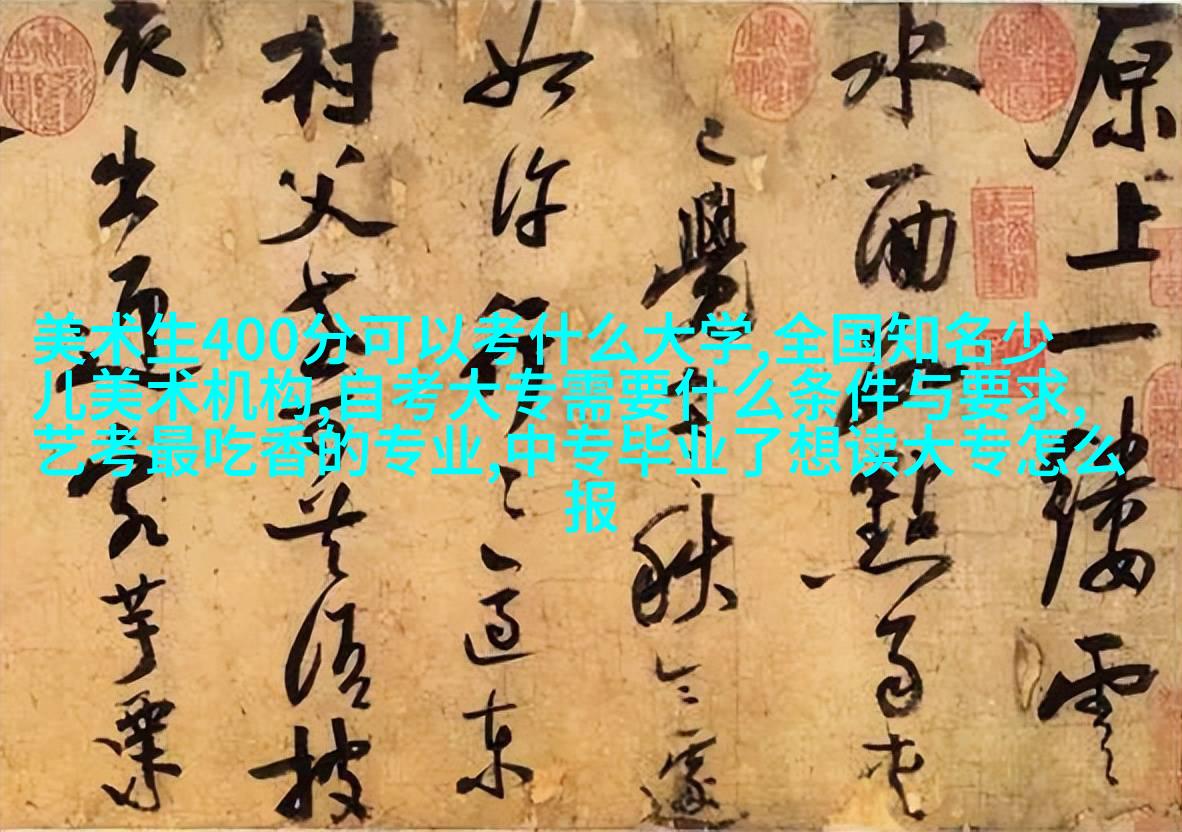 美术生400分可以考什么大学,全国知名少
儿美术机构,自考大专需要什么条件与要求,
艺考最吃香的专业,中专毕业了想读大专怎么
报
原上一縷雲
水面點
已覺秋
如許
村父老須披
衣出家芋栗